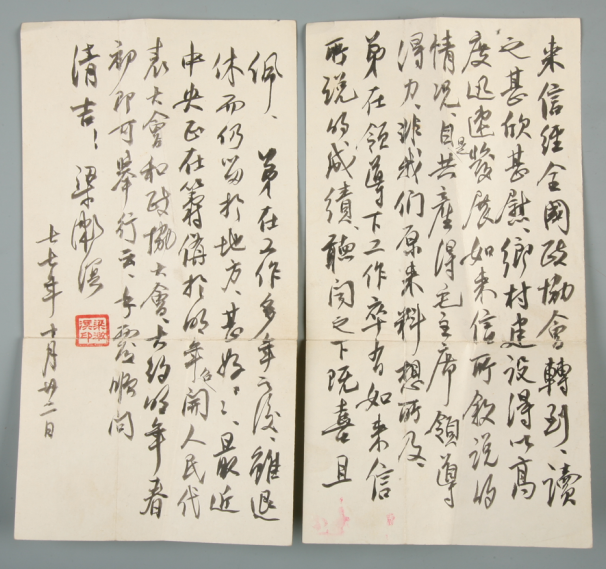 来信经全國政协會轉到、讀
之甚欣甚慰、鄉村建設得以高
度迅速發展如来信所叙说的
情况、自是共產得毛主席領導
得力、非我们原来料想所及、
弟在領導下工作卒有如来信
所说的成績、聽闻之下既喜且
佩、弟在工作多年之後、雖退
休而仍留於地方、甚好甚好、最近
中央正在筹備於明年召開人民代
表大會和政协大會、大约明年春
初即可舉行云、手覆順问
清吉！梁漱溟
七七年十月廿二日
梁漱
溟印